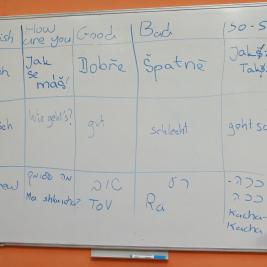 How are you Good Bad So-S
Jak se máš? Dobře Špatně Jakž Takž
Wie geht's? gut schlecht geht so
מה שלומך טוב רע ככה-ככה
Ma shlomcha? Tov Ra Kacha-Kacha